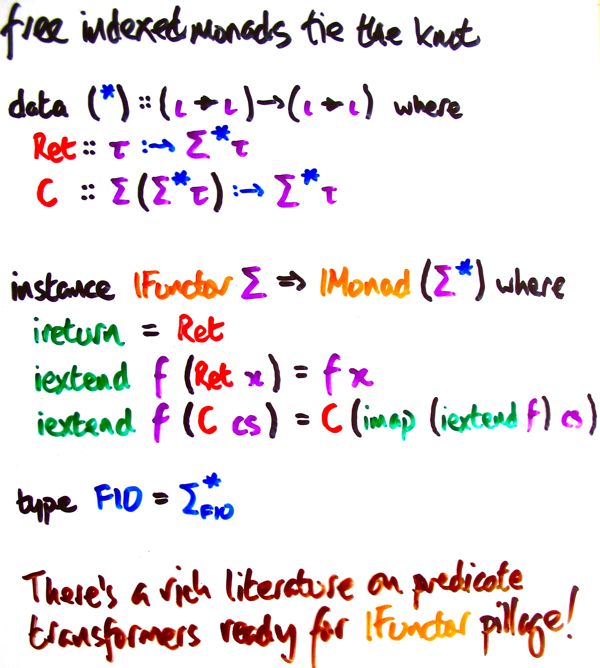 free indexed monads tie the knot
data (*) :: (ι → ι) → (ι → ι) where
Ret :: τ :→ Σ*τ
C :: Σ(Σ*τ) :→ Σ*τ
instance IFunctor Σ ⇒ IMonad (Σ*) where
ireturn = Ret
iextend f (Ret x) = f x
iextend f (C cs) = C (imap (iextend f) cs)
type FIO = Σ*FIO
There's a rich literature on predicate
transformers ready for IFunctor pillage!